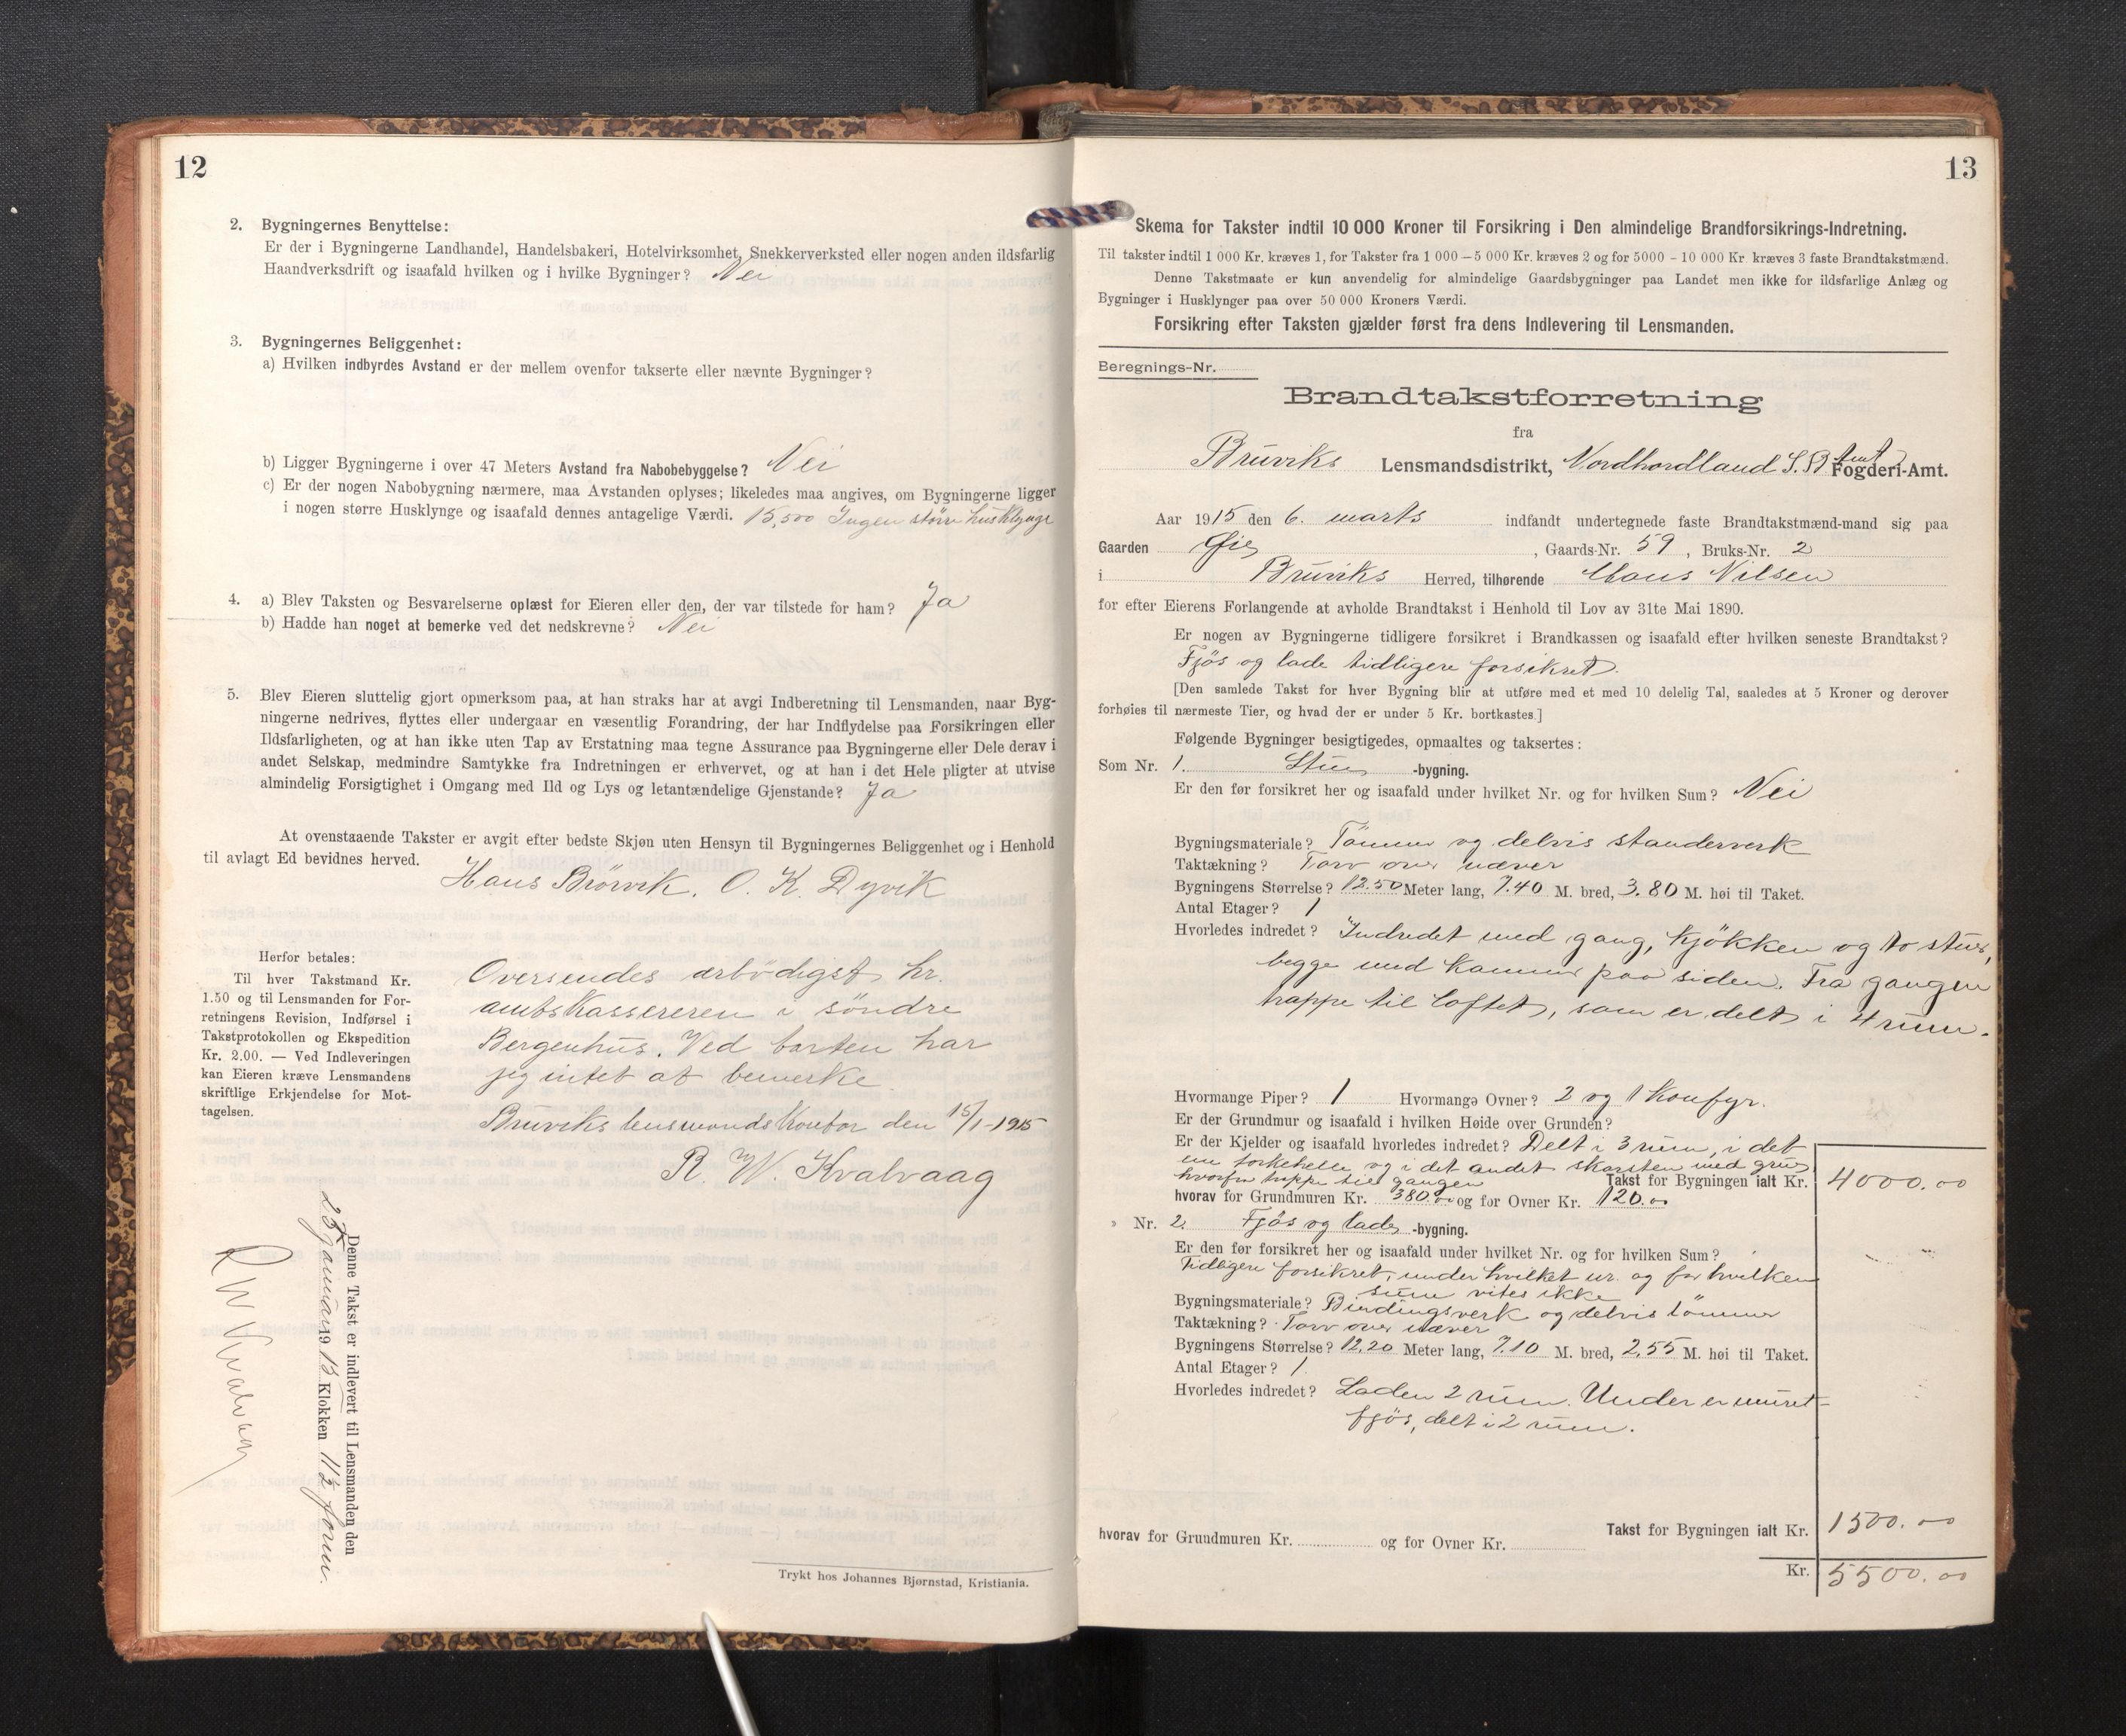 12
2. Bygningernes Benyttelse:
Er der i Bygningerne Landhandel, Handelsbakeri, Hotelvirksomhet, Snekkerverksted eller nogen anden ildsfarlig
Haandverksdrift og isaafald hvilken og i hvilke Bygninger? Nei
3. Bygningernes Beliggenhet:
a) Hvilken indbyrdes Avstand er der mellem ovenfor takserte eller nævnte Bygninger?
b) Ligger Bygningerne i over 47 Meters Avstand fra Nabobebyggelse? Nei
c) Er der nogen Nabobygning nærmere, maa Avstanden oplyses; likeledes maa angives, om Bygningerne ligger
i nogen større Husklynge og isaafald dennes antagelige Værdi. 15,500 Ingen större husklynge
4. a) Blev Taksten og Besvarelserne oplæst for Eieren eller den, der var tilstede for ham? Ja
b) Hadde han noget at bemerke ved det nedskrevne? Nei
5. Blev Eieren sluttelig gjort opmerksom paa, at han straks har at avgi Indberetning til Lensmanden, naar Byg-
ningerne nedrives, flyttes eller undergaar en væsentlig Forandring, der har Indflydelse paa Forsikringen eller
Ildsfarligheten, og at han ikke uten Tap av Erstatning maa tegne Assurance paa Bygningerne eller Dele derav i
andet Selskap, medmindre Samtykke fra Indretningen er erhvervet, og at han i det Hele pligter at utvise
almindelig Forsigtighet i Omgang med Ild og Lys og letantændelige Gjenstande? Ja
At ovenstaaende Takster er avgit efter bedste Skjøn uten Hensyn til Bygningernes Beliggenhet og i Henhold
til avlagt Ed bevidnes herved.
Hans Brörvik. O. K. Dyvik
Herfor betales:
Til hver Takstmand Kr.
1.50 og til Lensmanden for For-
retningens Revision, Indførsel i
Takstprotokollen og Ekspedition
Kr. 2.00. — Ved Indleveringen
kan Eieren kræve Lensmandens
skriftlige Erkjendelse for Mot-
tagelsen.
Oversendes ærbödigst hr.
amtskassereren i söndre
Bergenhus. Ved karten har
jeg intet at bemerke
Bruviks lensmandskontor den 15/1-1915
R. W. Kvalvaag
Denne Takst er indlevert til Lensmanden den
25 januar 1913 Klokken 11½ form.
R W Kvalvaag
Trykt hos Johannes Bjørnstad, Kristiania.
13
Skema for Takster indtil 10 000 Kroner til Forsikring i Den almindelige Brandforsikrings-Indretning.
Til takster indtil 1 000 Kr. kræves 1, for Takster fra 1 000 — 5 000 Kr. kræves 2 og for 5000 - 10 000 Kr kræves 3 faste Brandtakstmænd.
Denne Takstmaate er kun anvendelig for almindelige Gaardsbygninger paa Landet men ikke for ildsfarlige Anlæg og
Bygninger i Husklynger paa over 50 000 Kroners Værdi.
Forsikring efter Taksten gjælder først fra dens Indlevering til Lensmanden.
Beregnings-Nr.
Brandtakstforretning
fra
Bruviks Lensmandsdistrikt, Nordhordland S. B. Amt Fogderi-Amt.
Aar 1915 den 6. marts indfandt undertegnede faste Brandtakstmænd-mand sig paa
Gaarden Øie, Gaards-Nr. 59, Bruks-Nr. 2
i Bruviks Herred, tilhørende Mons Nilsen
for efter Eierens Forlangende at avholde Brandtakst i Henhold til Lov av 31te Mai 1890.
Er nogen av Bygningerne tidligere forsikret i Brandkassen og isaafald efter hvilken seneste Brandtakst?
Fjös og lade tidligere forsikret.
[Den samlede Takst for hver Bygning blir at utføre med et med 10 delelig Tal, saaledes at 5 Kroner og derover
forhøies til nærmeste Tier, og hvad der er under 5 Kr. bortkastes.]
Følgende Bygninger besigtigedes, opmaaltes og taksertes:
Som Nr. 1. Stue -bygning.
Er den før forsikret her og isaafald under hvilket Nr. og for hvilken Sum? Nei
Bygningsmateriale? Tömmer og delvis standerverk
Taktækning? Torv over næver
Bygningens Størrelse? 12.50 Meter lang, 7.40 M. bred, 3.80 M. høi til Taket.
Antal Etager? 1
Hvorledes indredet? Indredet med gang, kjökken og to stuer,
begge med kammer paa siden. Fra gangen
trappe til loftet, som er delt i 4 rum.
Hvormange Piper? 1 Hvormange Ovner? 2 og 1 Komfyr.
Er der Grundmur og isaafald i hvilken Høide over Grunden?
Er der Kjelder og isaafald hvorledes indredet? Delt i 3 rum, i det
ene torkehelle og i det andet skorsten med grue
hvorfra trappe til gangen Takst for Bygningen ialt Kr. 4000.00
hvorav for Grundmuren Kr. 380.00 og for Ovner Kr. 120.00
» Nr. 2. Fjös og lade -bygning.
Er den før forsikret her og isaafald under hvilket Nr. og for hvilken Sum?
Tidligere forsikret, under hvilket nr. og for hvilken
sum vites ikke
Bygningsmateriale? Bindingsverk og delvis tömmer
Taktækning? Torv over næver
Bygningens Størrelse? 12.20 Meter lang, 7.10 M. bred, 2.55 M. høi til Taket.
Antal Etager? 1.
Hvorledes indredet? Laden 2 rum. Under er muret
fjös, delt i 2 rum.
Takst for Bygningen ialt Kr. 1500.00
hvorav for Grundmuren Kr. og for Ovner Kr.
Kr. 5500.00